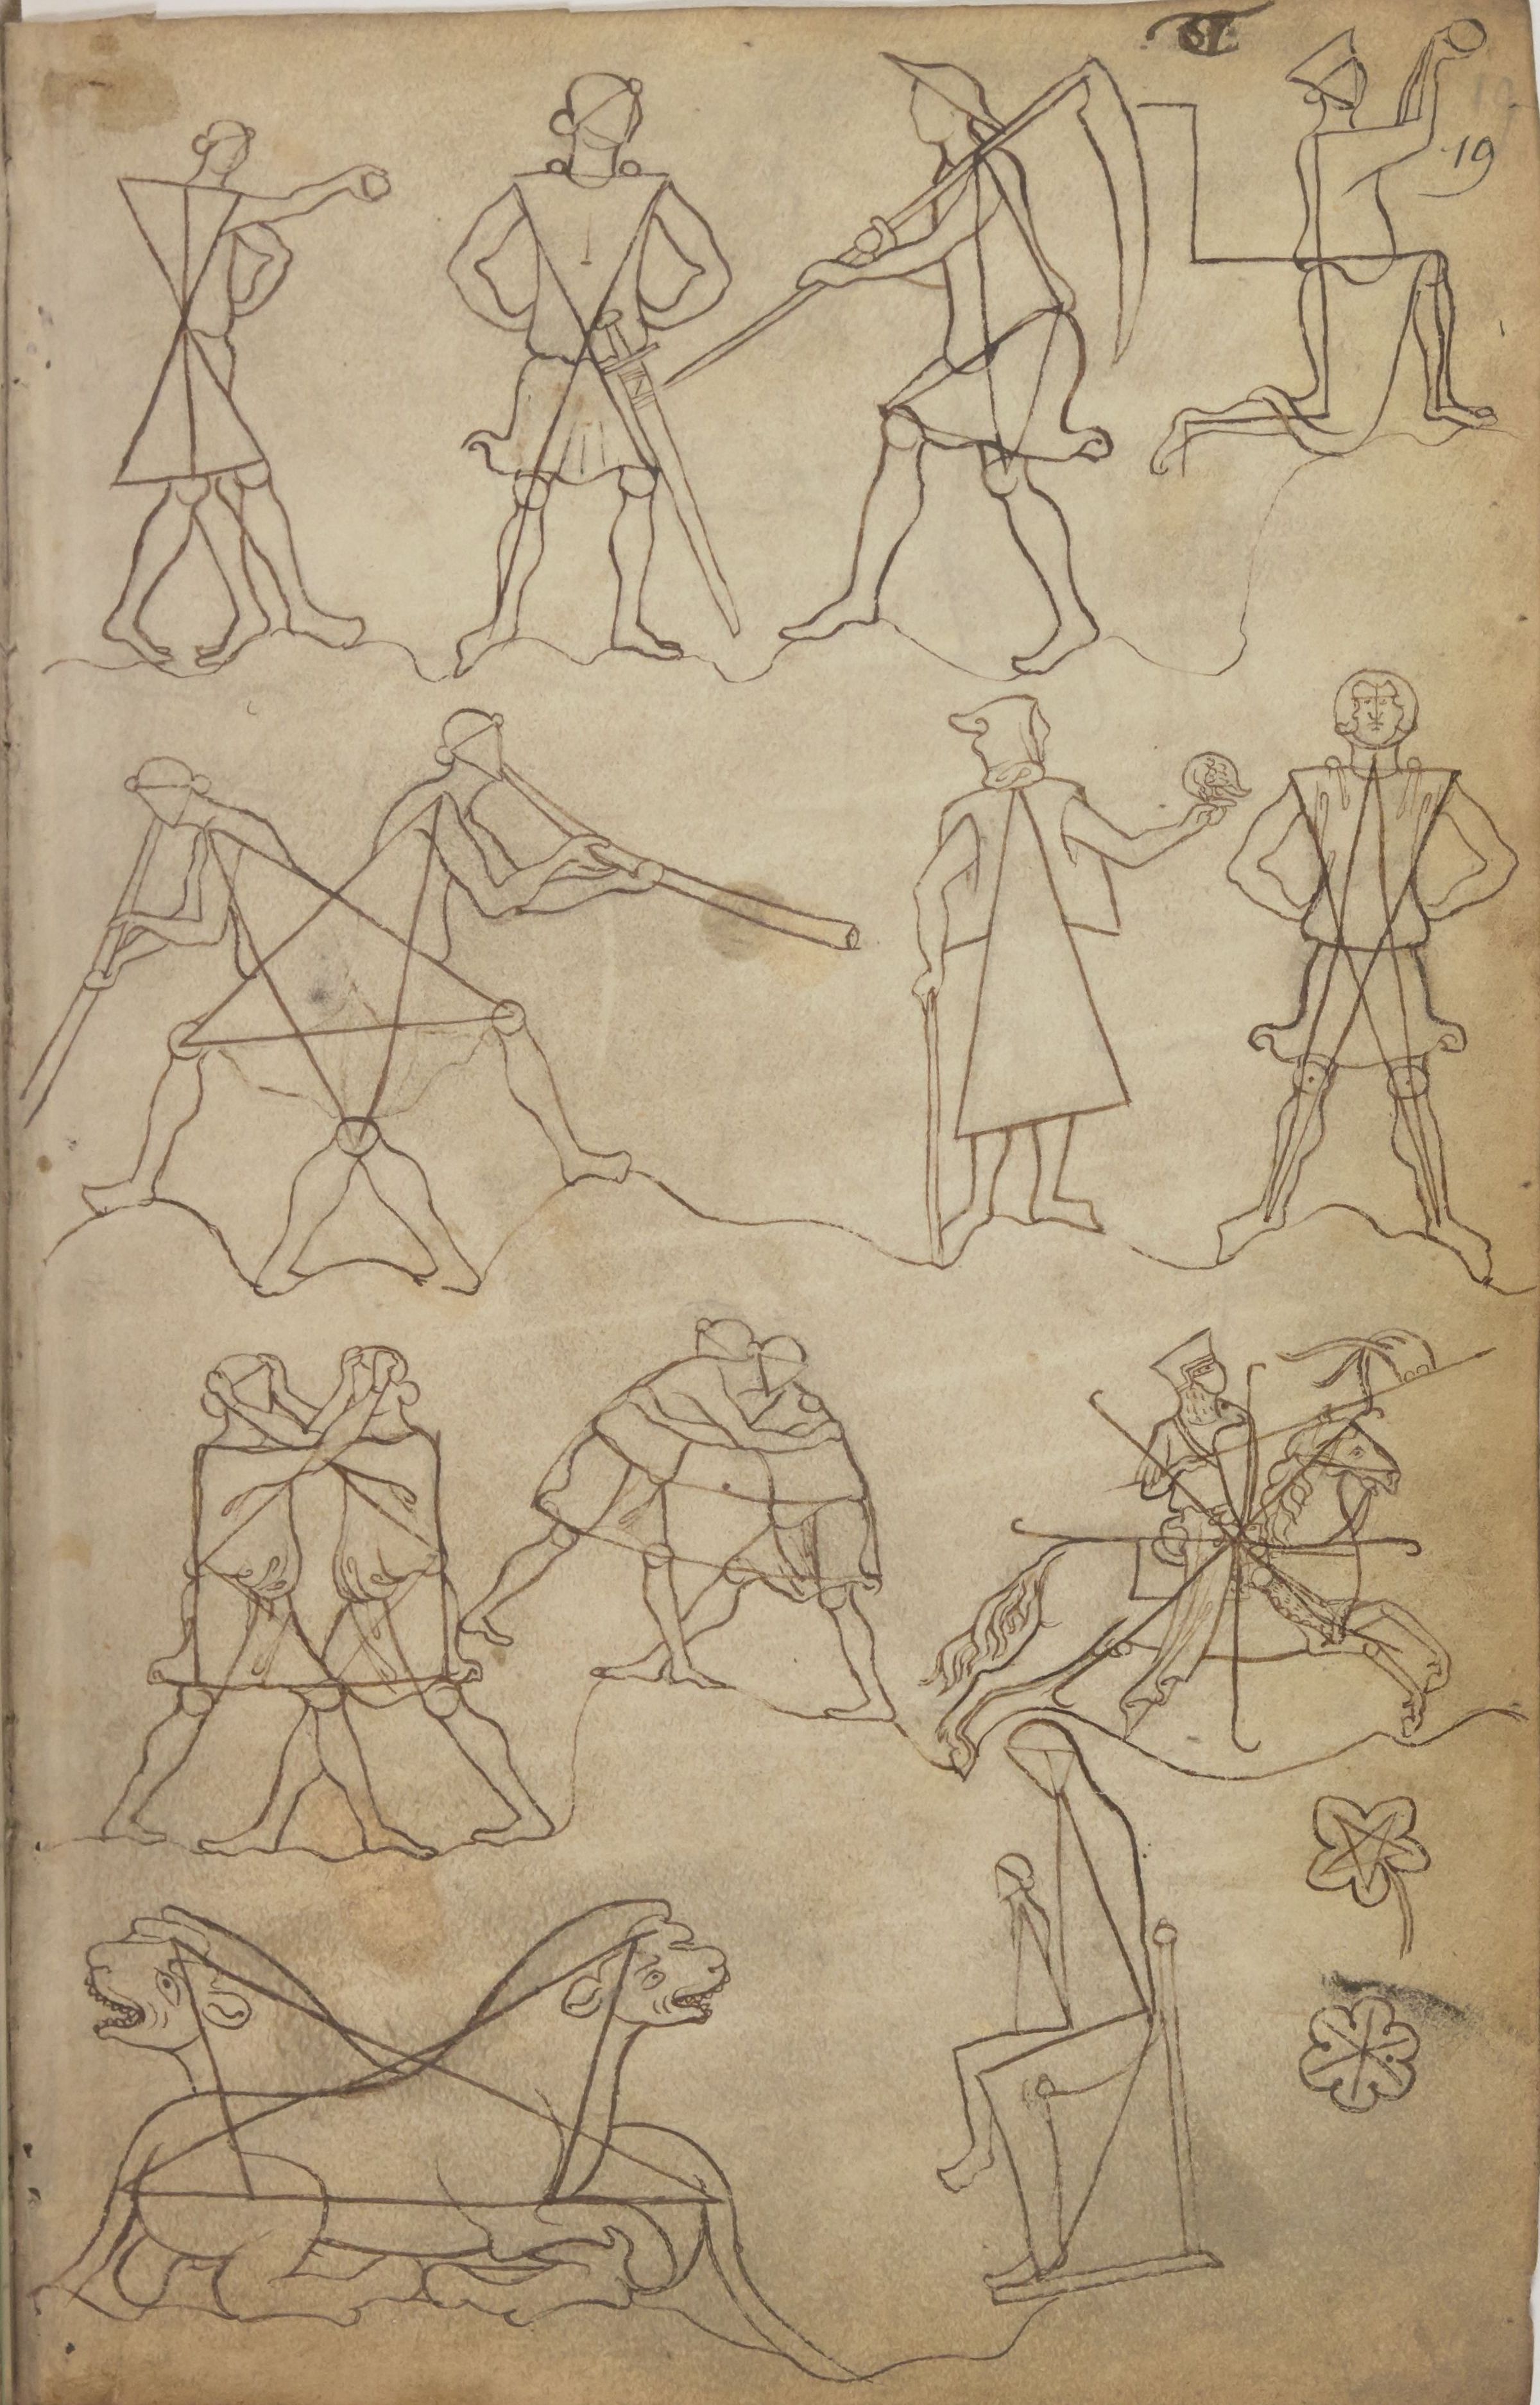 19
19